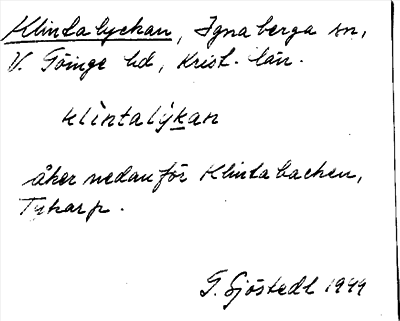 Klintalyckan, Ignaberga sn,
V. Göinge hd, Krist. län.
klìntalýkan
åker nedanför Klintabacken,
Tykarp.
G. Sjöstedt 1944